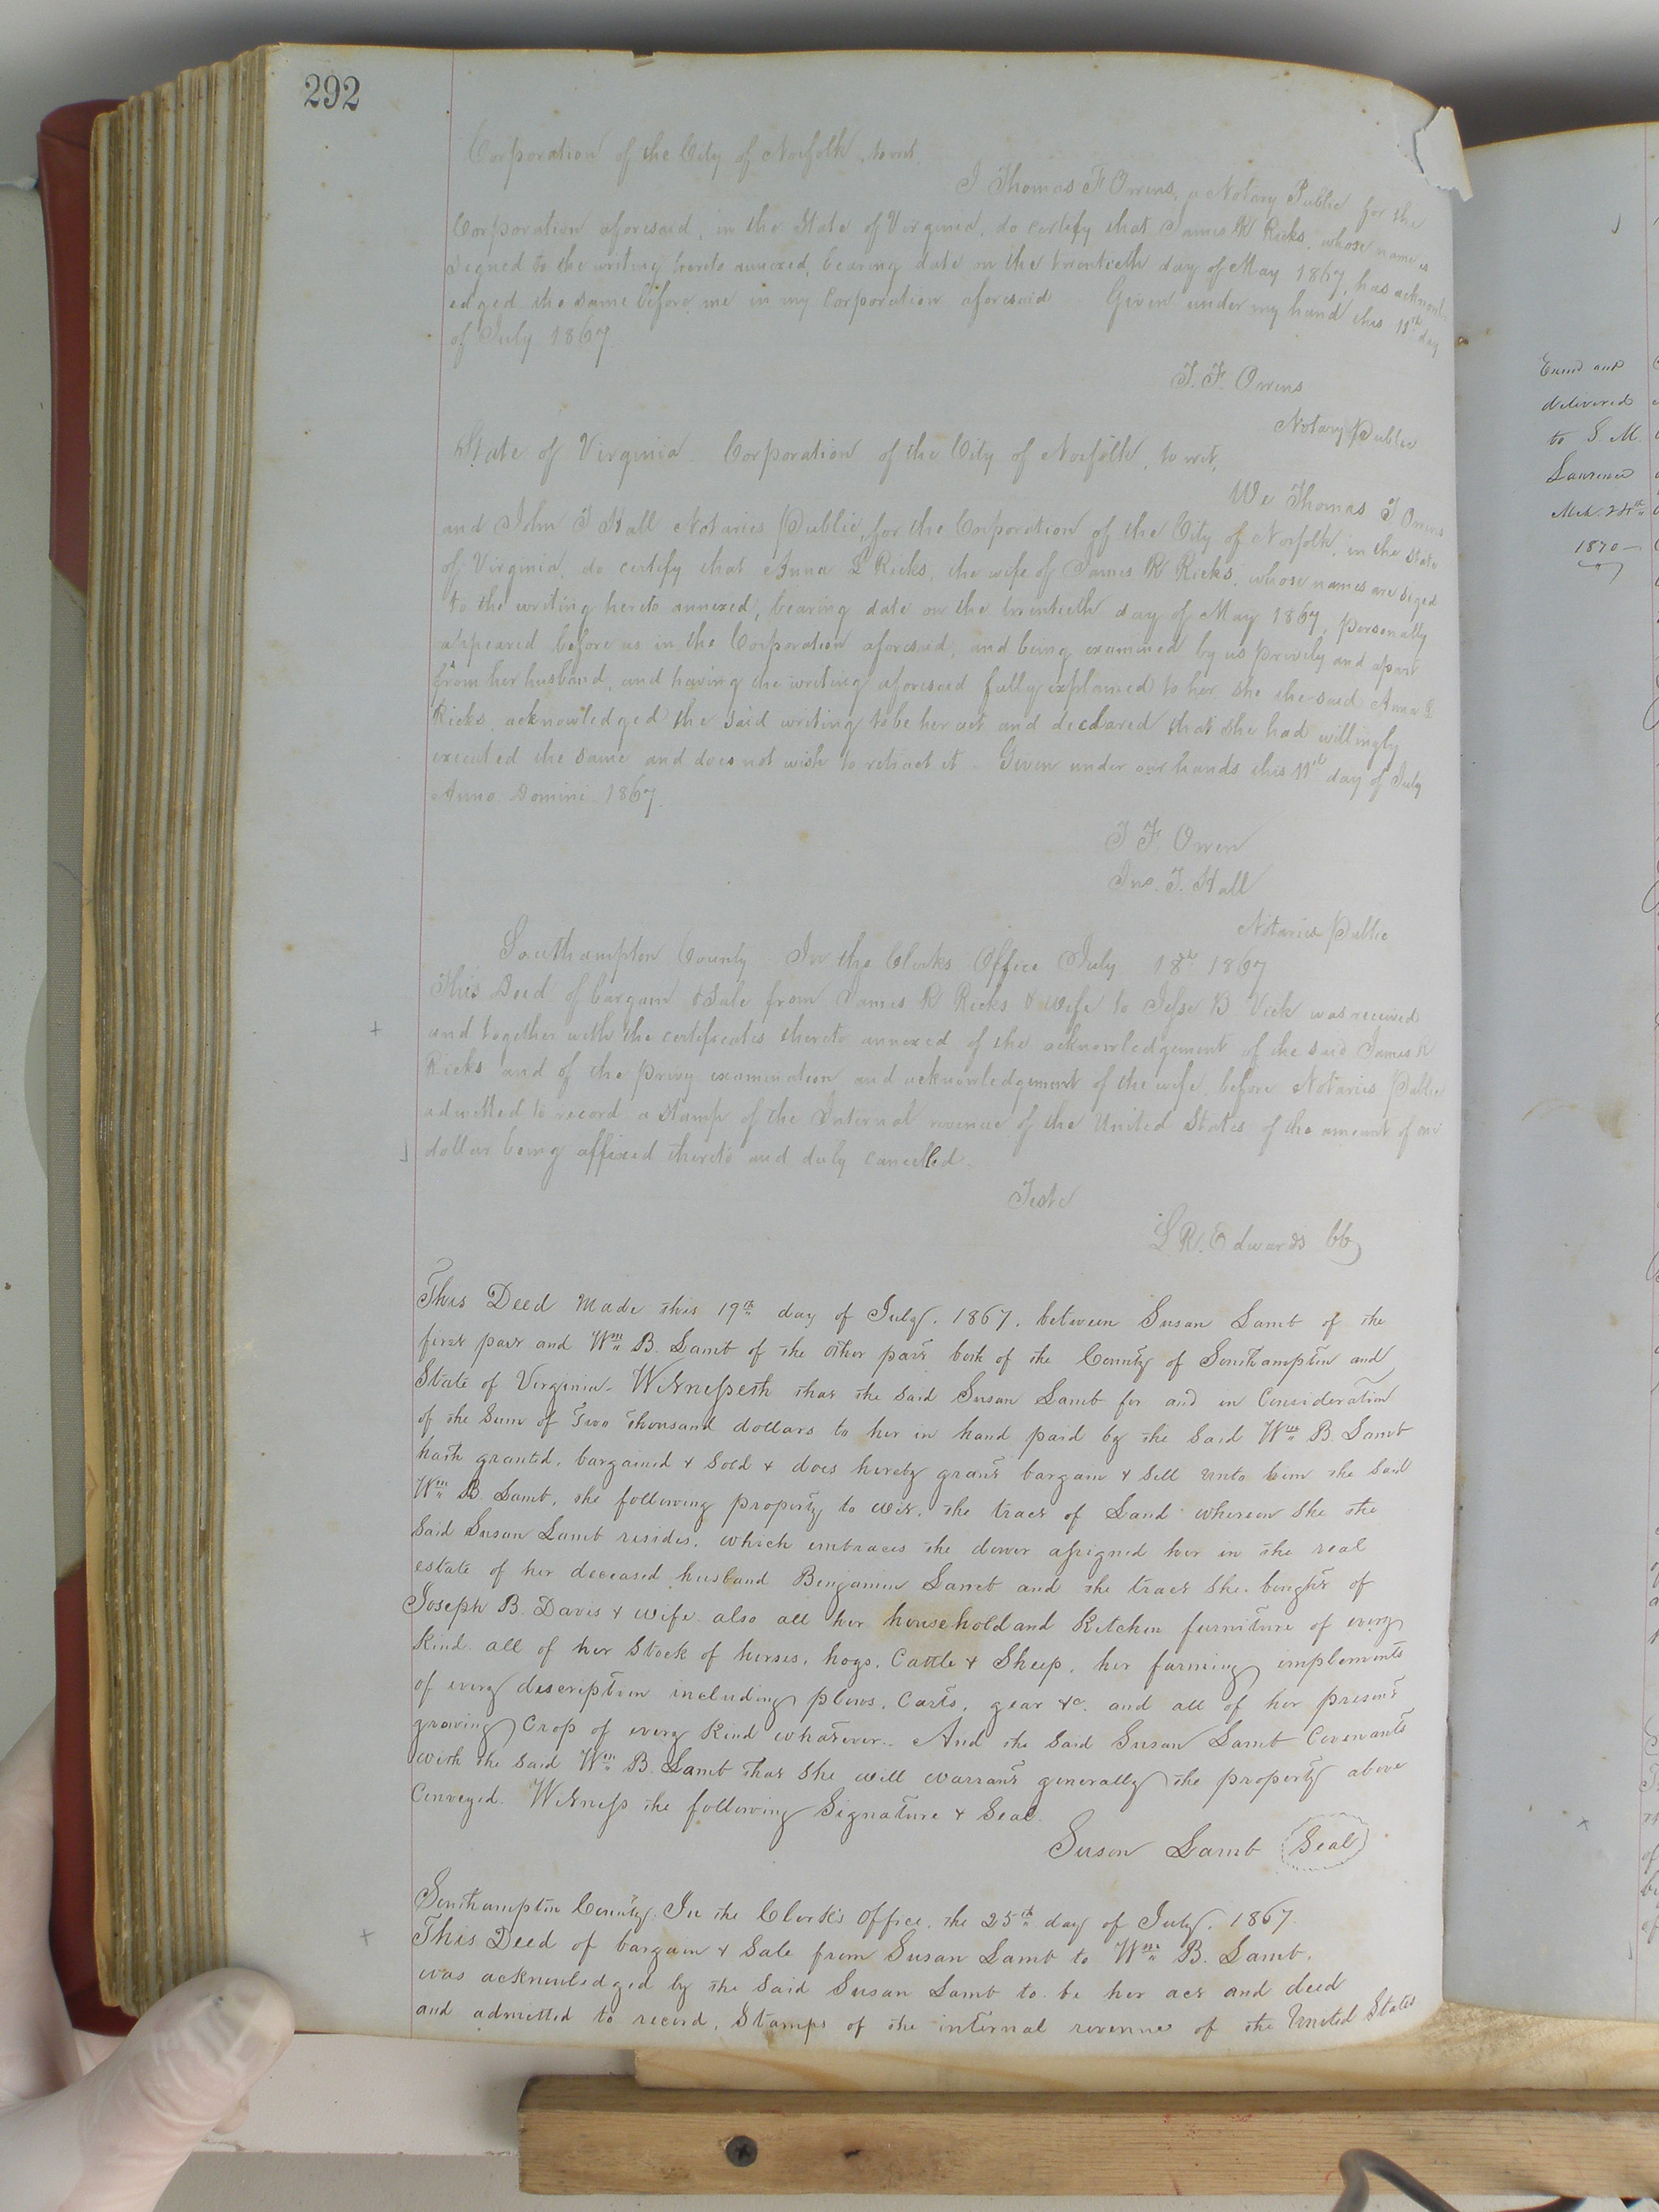 292
Corporation of the City of Norfolk, towit,
I Thomas F Owens, a Notary Public for the
Corporation aforesaid, in the State of Virginia, do certify that James R Ricks, whose name is
signed to the writing hereto annexed, bearing date on the twentieth day of May 1867, has acknowl-
edged the same before me in my Corporation aforesaid Given under my hand this 11th day
of July 1867.
T. F. Owens
Notary Public
State of Virginia Corporation of the City of Norfolk, to wit,
We Thomas F Owens
and John T Hall Notaries Public, for the Corporation of the City of Norfolk, in the State
of Virginia, do certify that Anna L Ricks, the wife of James R Ricks, whose names are siged
to the writing hereto annexed, bearing date on the twentieth day of May 1867, personally
appeared before us in the Corporation aforesaid, and being examined by us privily and apart
from her husband, and having the writing aforesaid fully explained to her she the said Anna L
Ricks, acknowledged the said writing to be her act and declared that she had willingly
executed the same and does not wish to retract it - Given under our hands this 11th day of July
Anno Domini 1867.
T F. Owen
Jno. T. Hall
Notaries Public
Southampton County In the Clerks Office July 18th 1867
This Deed of bargain & Sale from James R Ricks & wife to Jesse B Vick was received
and together with the certificates thereto annexed of the acknowledgement of the said James R
Ricks and of the privy examination and acknowledgement of the wife before Notaries Public
admitted to record a Stamp of the Internal revenue of the United States of the amount of one
dollar being affixed thereto and duly cancelled.
Teste
L R. Edwards CC
This Deed Made this 19th day of July, 1867, between Susan Lamb of the
first part and Wm B. Lamb of the other part both of the County of Southampton and
State of Virginia. Witnesseth that the said Susan Lamb for and in Consideration
of the Sum of Two Thousand dollars to her in hand paid by the said Wm B. Lamb
hath granted, bargained & Sold & does hereby grant bargain & Sell unto him the Said
Wm B. Lamb, the following property to wit, the tract of Land whereon She the
Said Susan Lamb resides, which embraces the dower assigned her in the real
estate of her deceased husband Benjamin Lamb and the tract She bought of
Joseph B. Davis & wife also all her household and Kitchen furniture of every
Kind all of her Stock of horses, hogs, Cattle & Sheep, her farming implements
of every description including plows, Carts, gear &c. and all of her present
growing Crop of every Kind whatever.. And the Said Susan Lamb Covenants
with the said Wm B. Lamb that She will warrant generally the property above
Conveyed. Witness the following Signature & Seal.
Susan Lamb Seal
Southampton County. In the Clerk's Office, the 25th day of July, 1867.
This Deed of bargain & Sale from Susan Lamb to Wm B. Lamb,
was acknowledged by the Said Susan Lamb to be her act and deed
and admitted to record, Stamps of the internal revenue of the United States
and
delivered
to S. M.
Lawrence
Mch. 24th
1870